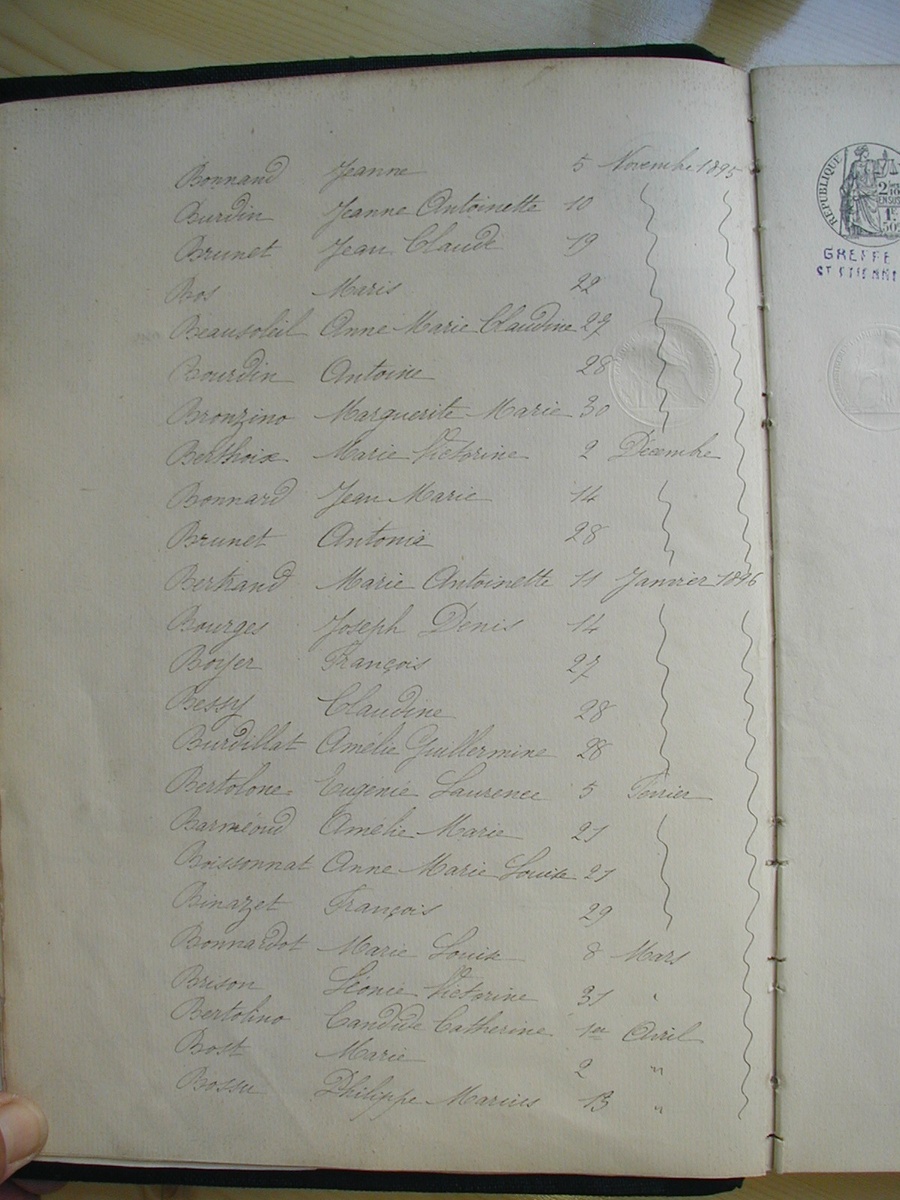 Bonnand Jeanne 5 Novembre 1895
Burdin Jeanne Antoinette 10
Brunet Jean Claude 19
Bos Maris 22
Beausoleil Anne Marie Claudine 27
Bourdin Antoine 28
Bronzino Marguerite Marie 30
Berthoix Marie Victorine 2 Décembre
Bonnard Jean Marie 14
Brunet Antonia 28
Bertrand Marie Antoinette 11 Janvier 1896
Bourges Joseph Denis 14
Boyer François 27
Bessy Claudine 28
Burdillat Amélie Guillermine 28
Bertolone Eugénie Laurence 5 Février
Barméoud Amélie Marie 21
Boissonnat Anne Marie Louise 21
Binazet François 29
Bonnardot Marie Louise 8 Mars
Brison Léonie Victorine 31 "
Bertolino Candide Catherine 1er Avril
Bost Marie 2 "
Bossu Philippe Marius 13 "
REPUBLIQUE
2
EN SUS
1
50
GREFFE
ST ETIENN